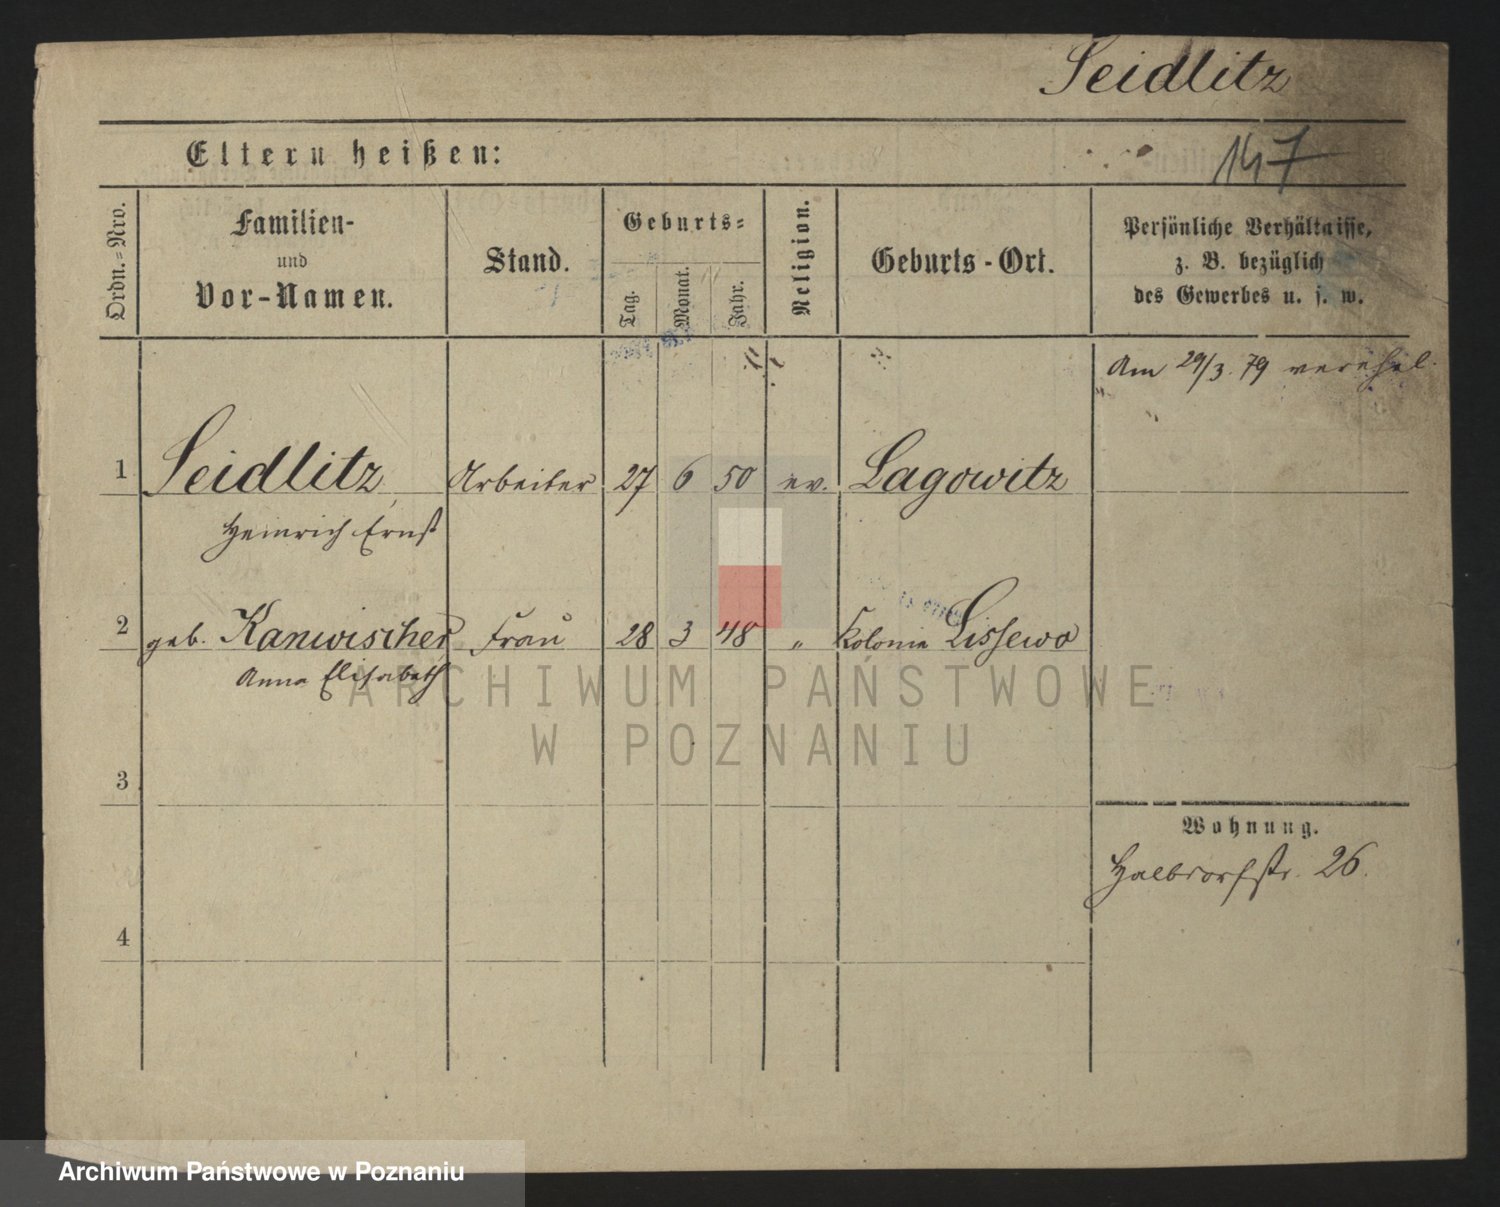 Seidlitz
147
Eltern heißen:
Ordn.-Nro.
Familien-
und
Vor-Namen.
Stand.
Geburts-
Tag.
Monat.
Jahr.
Religion.
Geburts-Ort.
Persönliche Verhältnisse,
z. B. bezüglich
des Gewerbes u. s. w.
Am 29/3. 79 verehel.
1 Seidlitz, Arbeiter 27 6 50 ev. Lagowitz
Heinrich Ernst
2 geb. Kanwischer Frau 28 3 48 " Kolonie Lissewo
Anna Elisabeth
ARCHIWUM PAŃSTWOWE
W POZNANIU
3
Wohnung.
Halbdorfstr. 26.
4
Archiwum Państwowe w Poznaniu